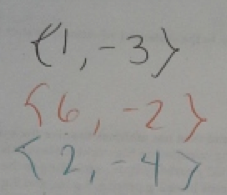 ⟨1, -3⟩
⟨6, -2⟩
⟨2, -4⟩